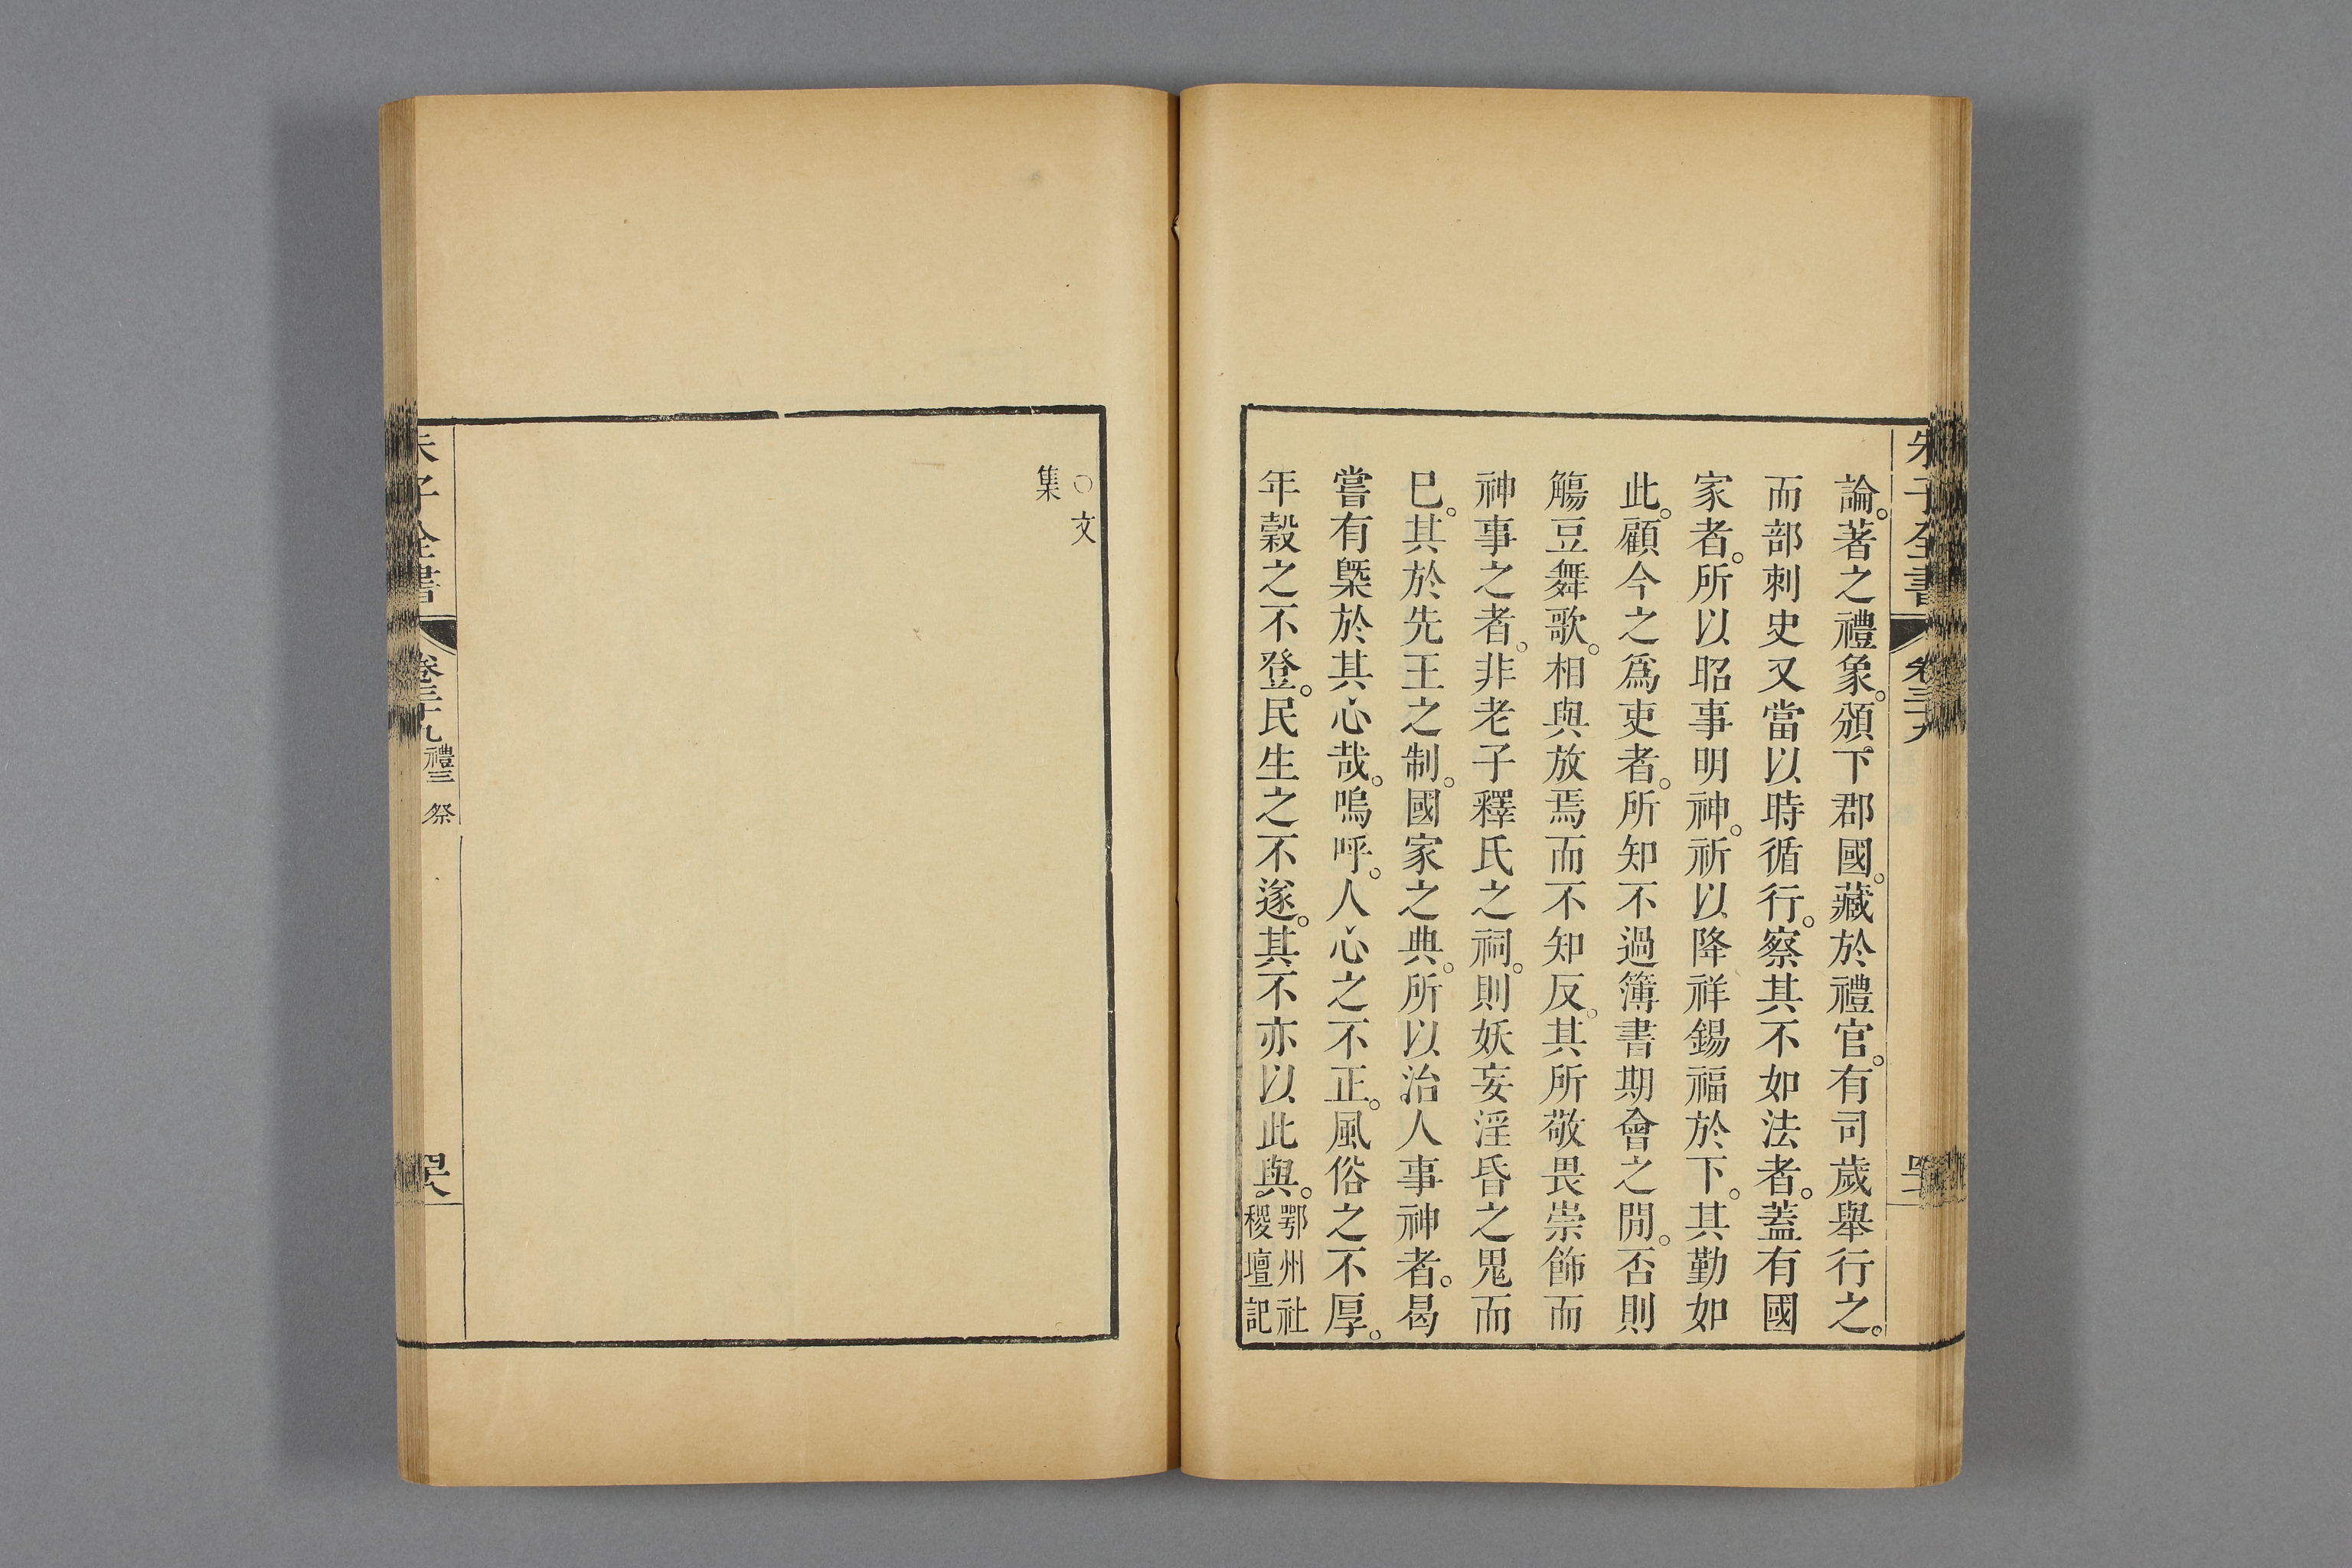 朱子全書 卷三十九
論。著之禮象。頒下郡國。藏於禮官。有司歲舉行之。
而部刺史又當以時循行。察其不如法者。蓋有國
家者。所以昭事明神。祈以降祥錫福於下。其勤如
此。顧今之爲吏者。所知不過簿書期會之閒。否則
觴豆舞歌。相與放焉而不知反。其所敬畏崇飾而
神事之者。非老子釋氏之祠。則妖妄淫昏之鬼而
已。其於先王之制。國家之典。所以治人事神者。曷
嘗有槩於其心哉。嗚呼。人心之不正。風俗之不厚。
年穀之不登。民生之不遂。其不亦以此與。鄂州社
稷壇記
○文
集
朱子全書 卷三十九 禮三 祭